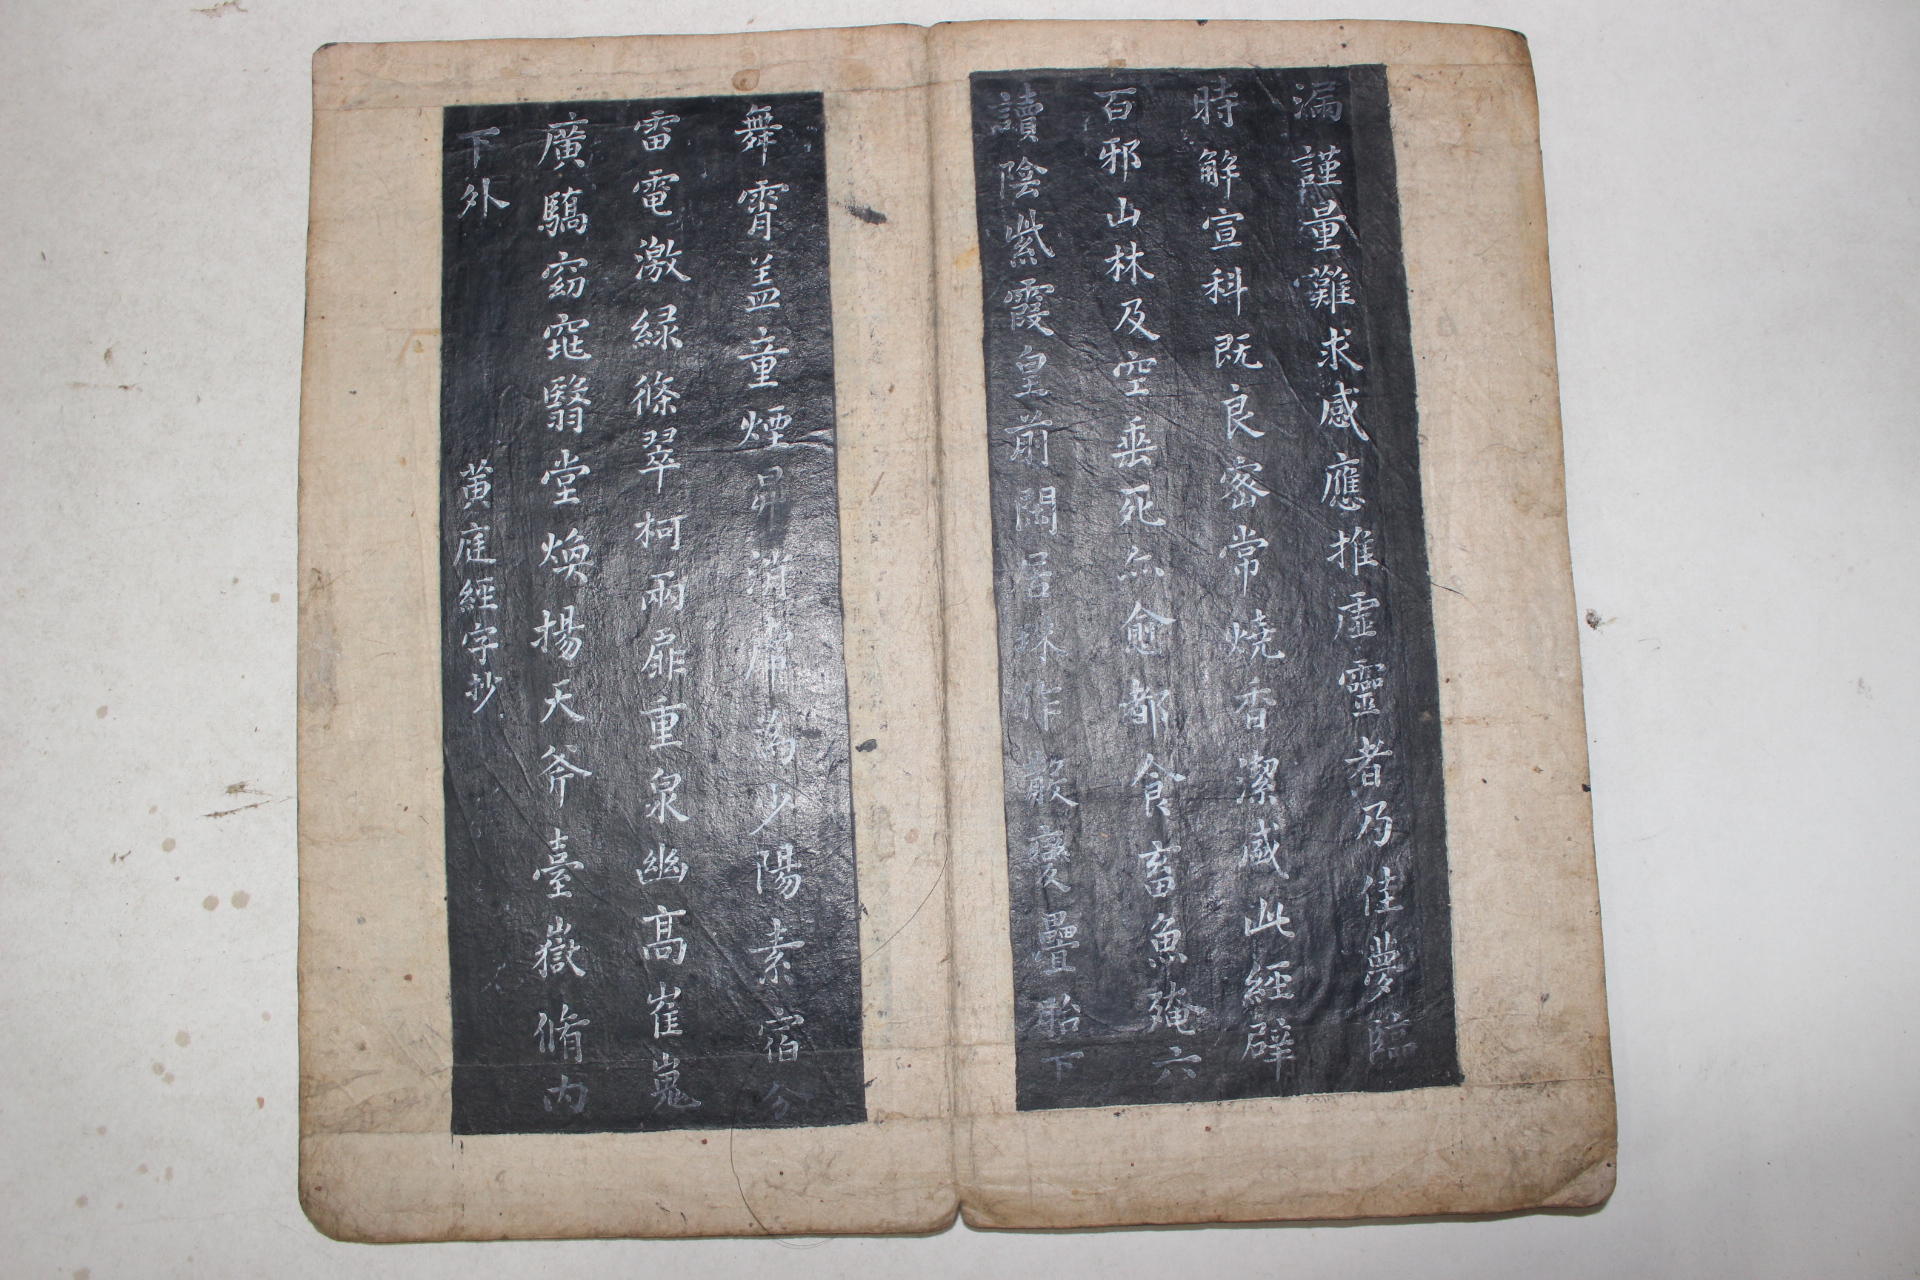 漏謹量難求感應推虛靈者乃佳夢臨
時解宣科既良密常燒香潔感此經辟
百邪山林及空垂死亦愈都食畜魚殗六
讀陰紫霞皇前閑居琳作散變疊胎下
舞霄盖童煙昇消席為少陽素宿分
雷電激緑條翠柯兩扉重泉幽高崔嵬
廣驕窈窕翳堂煥揚天斧臺嶽脩內
下外
黄庭經字抄